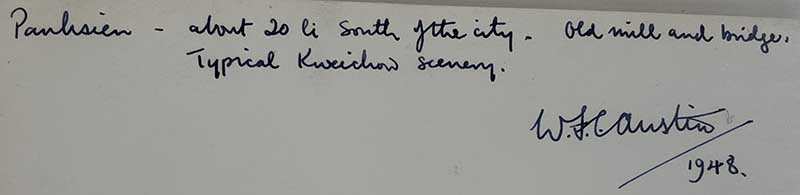 Panhsien - about 20 li South of the city. Old mill and bridge.
Typical Kweichow scenery.
W.F.C Austin
1948.